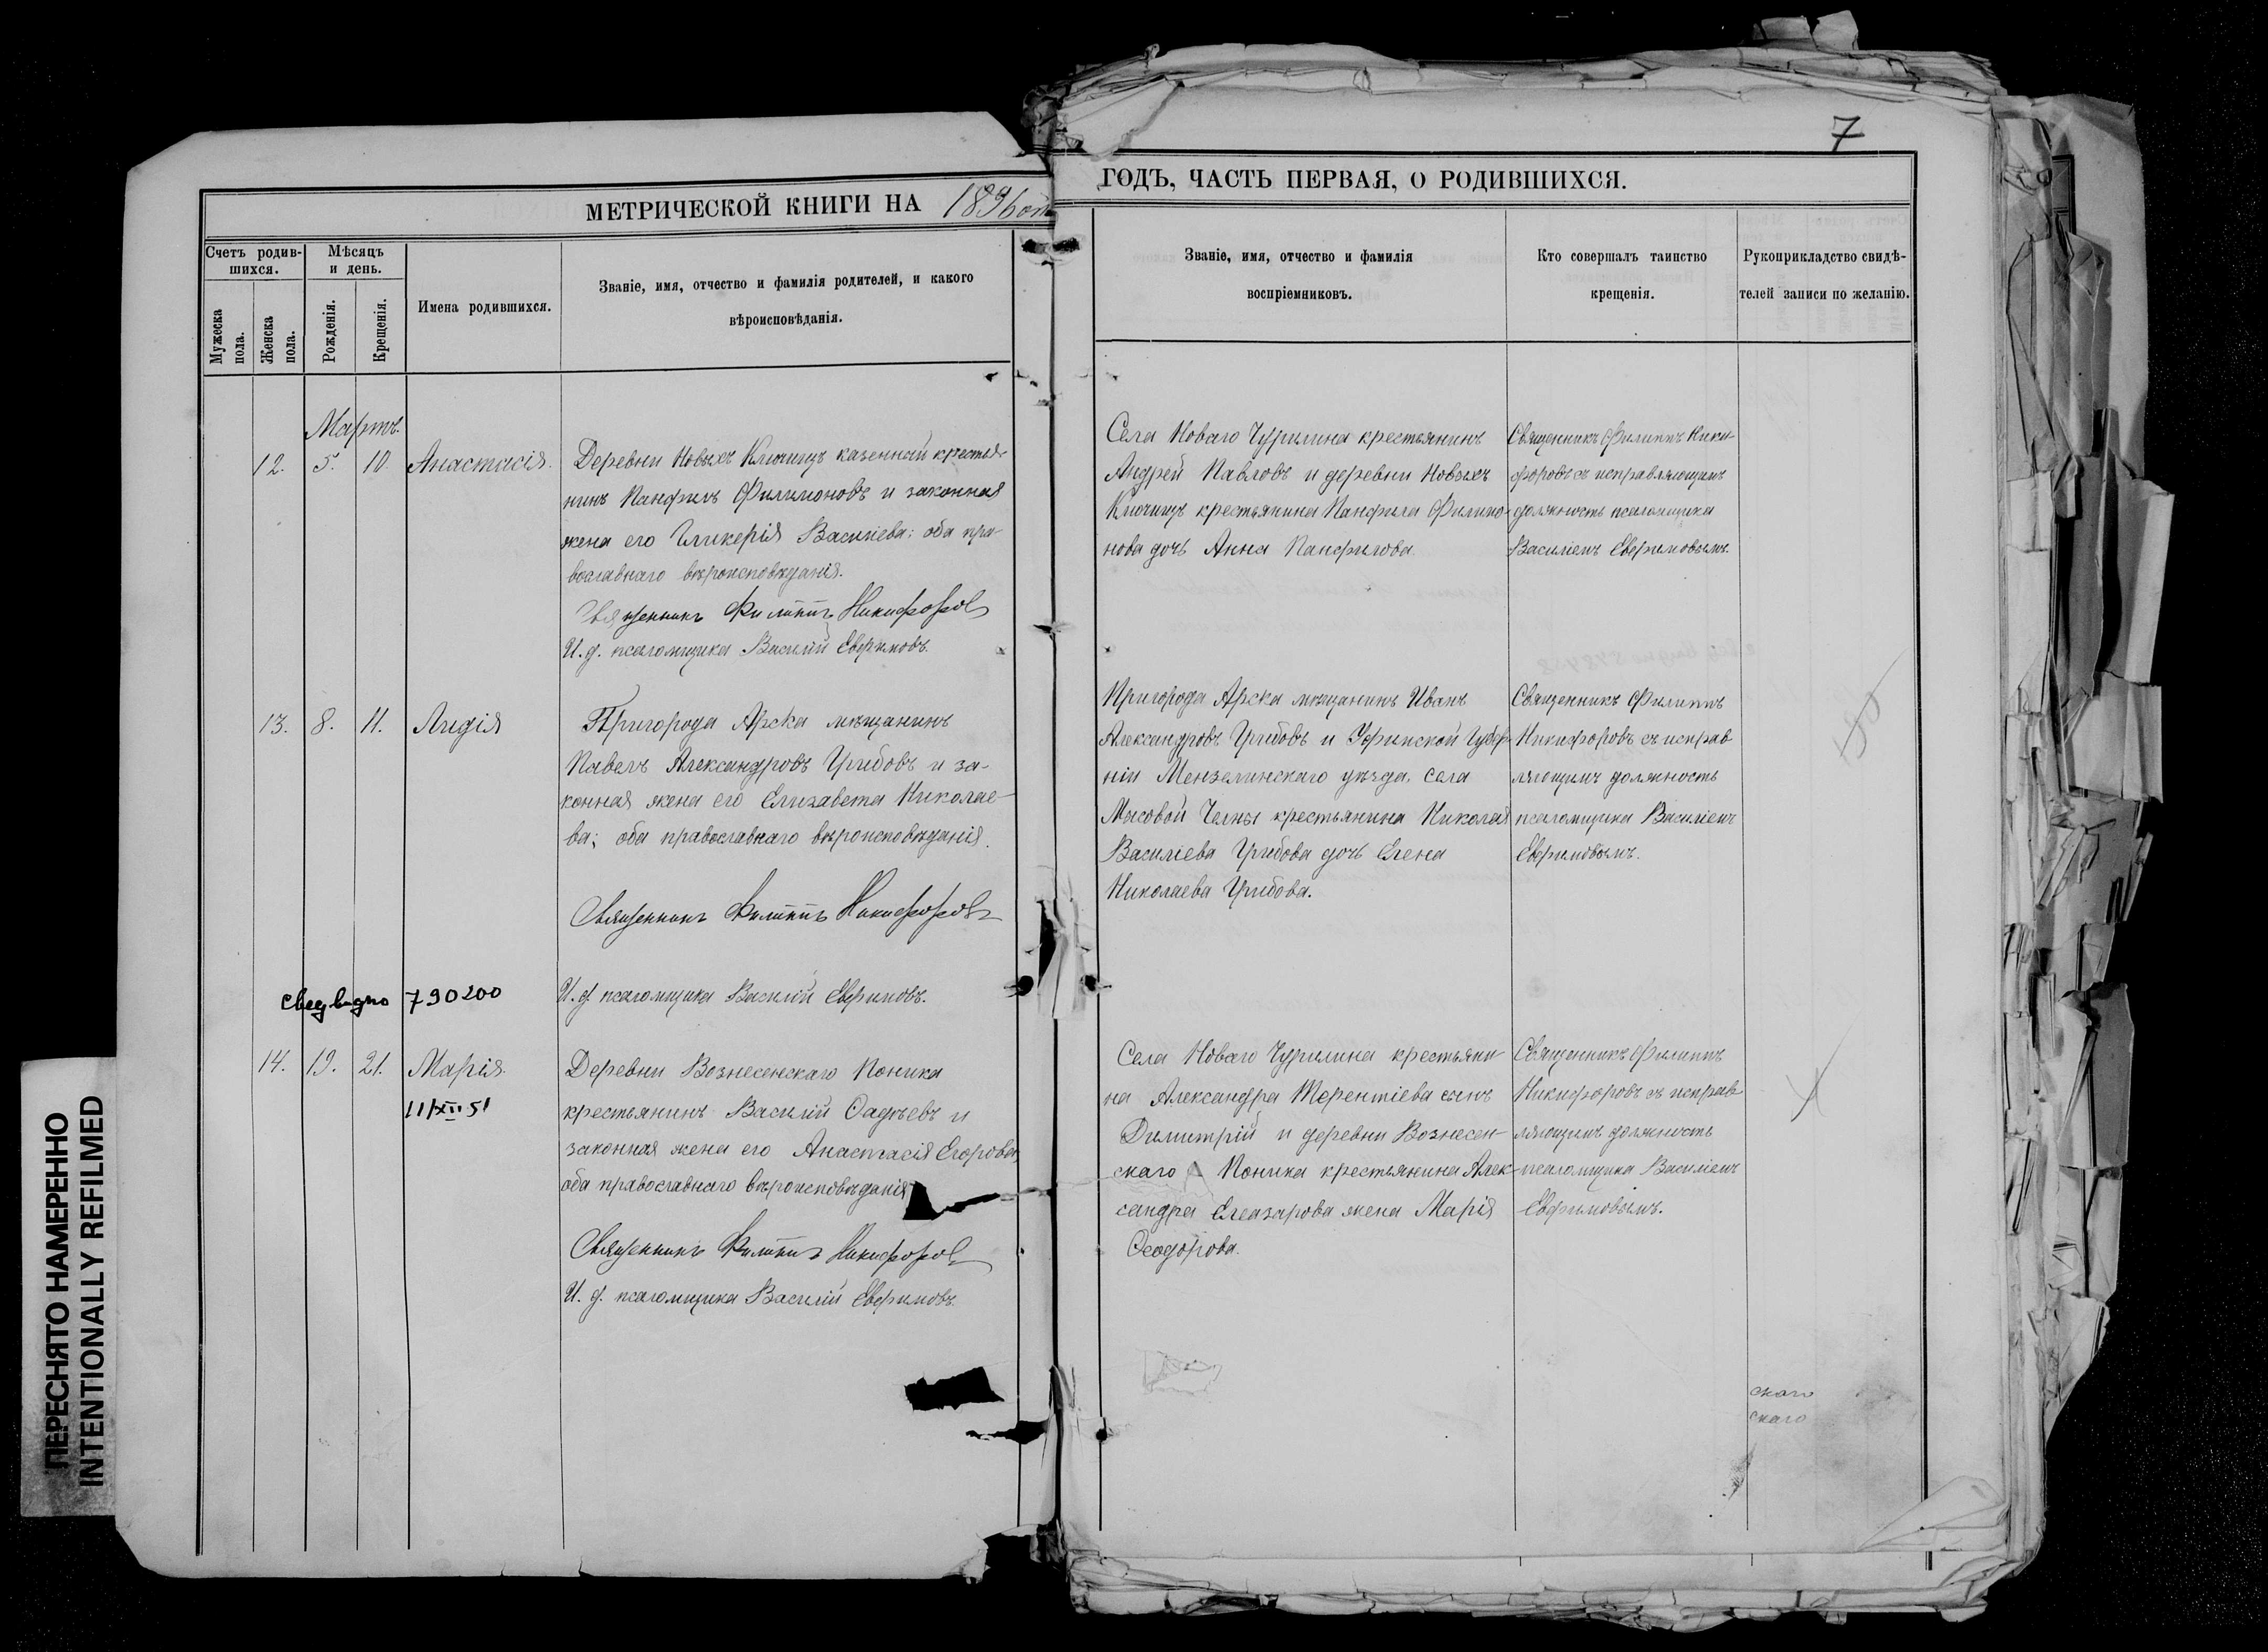 7
МЕТРИЧЕСКОЙ КНИГИ НА 1896
ГОДЪ, ЧАСТЬ ПЕРВАЯ, О РОДИВШИХСЯ.
Счетъ родив-
шихся.
Мужеска пола.
Женска пола.
Мѣсяцъ
и день.
Рожденія.
Крещенія.
Имена родившихся.
Званіе, имя, отчество и фамилія родителей, и какого
вѣроисповѣданія.
Званіе, имя, отчество и фамилія
воспріемниковъ.
Кто совершалъ таинство
крещенія.
Рукоприкладство свидѣ-
телей записи по желанію.
Мартъ.
12. 5. 10. Анастасія.
Деревни Новыхъ Ключищъ казенный крестья-
нинъ Панфилъ Филимоновъ и законная
жена его Гликерія Василіева: оба пра-
вославнаго вѣроисповѣданія.
Священникъ Филиппъ Никифоровъ
И. д. псаломщика Василій Евфимовъ.
Села Новаго Чурилина крестьянинъ
Андрей Павловъ и деревни Новыхъ
Ключищъ крестьянина Панфила Филимо-
нова дочь Анна Панфилова.
Священникъ Филиппъ Ники-
форовъ съ исправляющимъ
должность псаломщика
Василіемъ Евфимовымъ.
13. 8. 11. Лидія
Пригорода Арска мѣщанинъ
Павелъ Александровъ Грибовъ и за-
конная жена его Елизавета Николае-
ва; оба православнаго вѣроисповѣданія.
Священникъ Филиппъ Никифоровъ
И. д. псаломщика Василій Евфимовъ.
Пригорода Арска мѣщанинъ Иванъ
Александровъ Грибовъ и Уфимской Губер-
ніи Мензелинскаго уѣзда, села
Мысовой Челны крестьянина Николая
Василіева Грибова дочь Елена
Николаева Грибова.
Священникъ Филиппъ
Никифоровъ съ исправ
ляющимъ должность
псаломщика Василіемъ
Евфимовымъ.
790200
14. 19. 21. Марія.
11/XII 51
Деревни Вознесенскаго Поника
крестьянинъ Василій Фадѣевъ и
законная жена его Анастасія Егорова,
оба православнаго вѣроисповѣданія
Священникъ Филиппъ Никифоровъ
И. д. псаломщика Василій Евфимовъ.
Села Новаго Чурилина крестьяни-
на Александра Терентіева сынъ
Димитрій и деревни Вознесен-
скаго Поника крестьянина Алек-
сандра Елеазарова жена Марія
Ѳеодорова.
Священникъ Филиппъ
Никифоровъ съ исправ
ляющимъ должность
псаломщика Василіемъ
Евфимовымъ.
скаго
скаго
ПЕРЕСНЯТО НАМЕРЕННО
INTENTIONALLY REFILMED